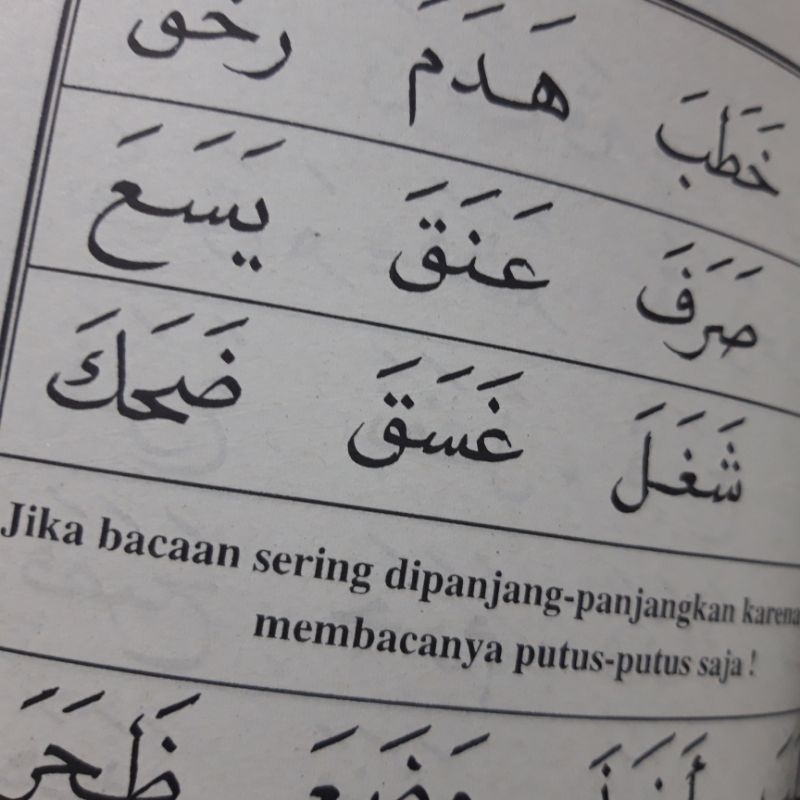 خَطَبَ هَدَمَ
صَرَفَ عَنَقَ يَسَعَ
شَغَلَ غَسَقَ ضَحَكَ
Jika bacaan sering dipanjang-panjangkan karena
membacanya putus-putus saja !
وَضَعَ